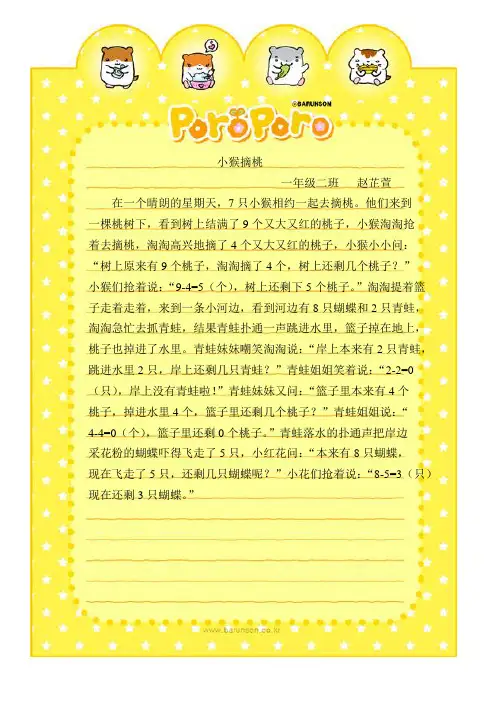 ©BARUNSON
PoroPoro
小猴摘桃
一年级二班 赵芷萱
在一个晴朗的星期天，7只小猴相约一起去摘桃。他们来到
一棵桃树下，看到树上结满了9个又大又红的桃子，小猴淘淘抢
着去摘桃，淘淘高兴地摘了4个又大又红的桃子，小猴小小问：
“树上原来有9个桃子，淘淘摘了4个，树上还剩几个桃子？”
小猴们抢着说：“9-4=5（个），树上还剩下5个桃子。”淘淘提着篮
子走着走着，来到一条小河边，看到河边有8只蝴蝶和2只青蛙，
淘淘急忙去抓青蛙，结果青蛙扑通一声跳进水里，篮子掉在地上，
桃子也掉进了水里。青蛙妹妹嘲笑淘淘说：“岸上本来有2只青蛙，
跳进水里2只，岸上还剩几只青蛙？”青蛙姐姐笑着说：“2-2=0
（只），岸上没有青蛙啦！”青蛙妹妹又问：“篮子里本来有4个
桃子，掉进水里4个，篮子里还剩几个桃子？”青蛙姐姐说：“
4-4=0（个），篮子里还剩0个桃子。”青蛙落水的扑通声把岸边
采花粉的蝴蝶吓得飞走了5只，小红花问：“本来有8只蝴蝶，
现在飞走了5只，还剩几只蝴蝶呢？”小花们抢着说：“8-5=3（只）
现在还剩3只蝴蝶。”
www.barunson.co.kr